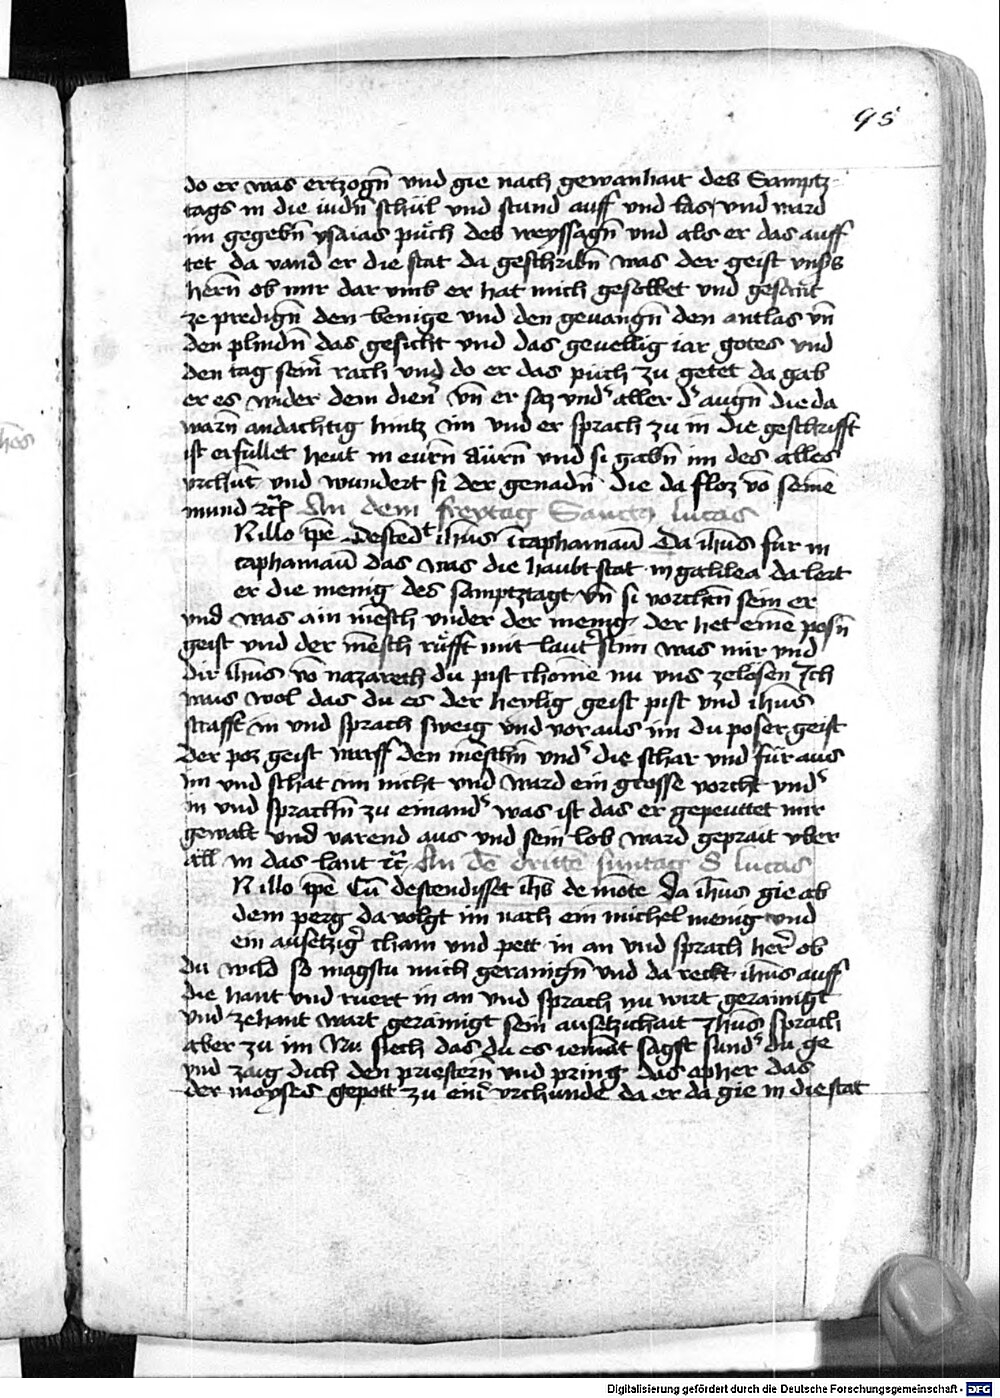 95
do er was ertzogn̄ vnd gie nach gewanhait des Samptz
tags in die iudn̄ schůl vnd stund auff vnd las vnd ward
im gegebn̄ ysaias půch des weyssagn̄ vnd als er das auff
tet da vand er die stat da geschribn̄ was der geist vnsˢs
hern̄ ob mir dar vmb er hat mich gesalbet vnd gesant
ze predign̄ den benige vnd den geuangn̄ den antlas vn̄
den plindn̄ das gesicht vnd das geuellig iar gotes vnd
den tag seinˢ rach vnd do er das půch zu getet da gab
er es wider dem dienˢ vn̄ er saz vndˢ aller dˢ augn̄ die da
warn̄ andachtig hintz im vnd er sprach zu in die geschrifft
ist erfullet heut in eurn̄ aürn̄ vnd si gabn̄ im des alles
vrchūt vnd wundert si der genadn̄ die da floz vō seinē
mund etc̄ An dem freytag Sanctj lucas
N illo tp̄e Descēdᵗ ih̄us ī caphamaū Da ih̄us fur in
caphamaū das was die haubt stat in galilea da lert
er die menig des samptztagt vn̄ si vorchtn̄ sein er
vnd was ain mēsch vnder der menig der het einē posn̄
geist vnd der mēsch růfft mit lautˢ stim was mir vnd
dir ih̄us vō nazareth du pist chomē nu vns zelosen Ich
wais wol das du es der heylig geist pist vnd ih̄us
strafft in vnd sprach sweig vnd vor aus im du poser geist
der poz geist warff den mēschn̄ vndˢ die schar vnd für aus
im vnd schat im nicht vnd ward ein grosse vorcht vndˢ
in vnd sprachn̄ zu einandˢ was ist das er gepeuttet mir
gewalt vnd varend aus vnd sein lob ward geprait vber
all in das lant etc̄ An dē drittē suntag S lucas
N illo tp̄e Cū descendisset ih̄s de mōte Da ih̄us gie ab
dem perg da volgt im nach ein michel menig vnd
ein ausetzigˢ cham vnd pett in an vnd sprach herˢ ob
du wild so magstu mich geranign̄ vnd da reckt ih̄us auff
die hant vnd ruert in an vnd sprach nu wirt gerainigt
vnd zehant wart gerainigt sein ausetzichait Ih̄us sprach
aber zu im Nu siech das du es iemāt sagst sundˢ du ge
vnd zaig dich den priestern̄ vnd pring das opher das
der moyses gepott zu einˢ vrchunde da er da gie in die stat
Digitalisierung gefördert durch die Deutsche Forschungsgemeinschaft - DFG